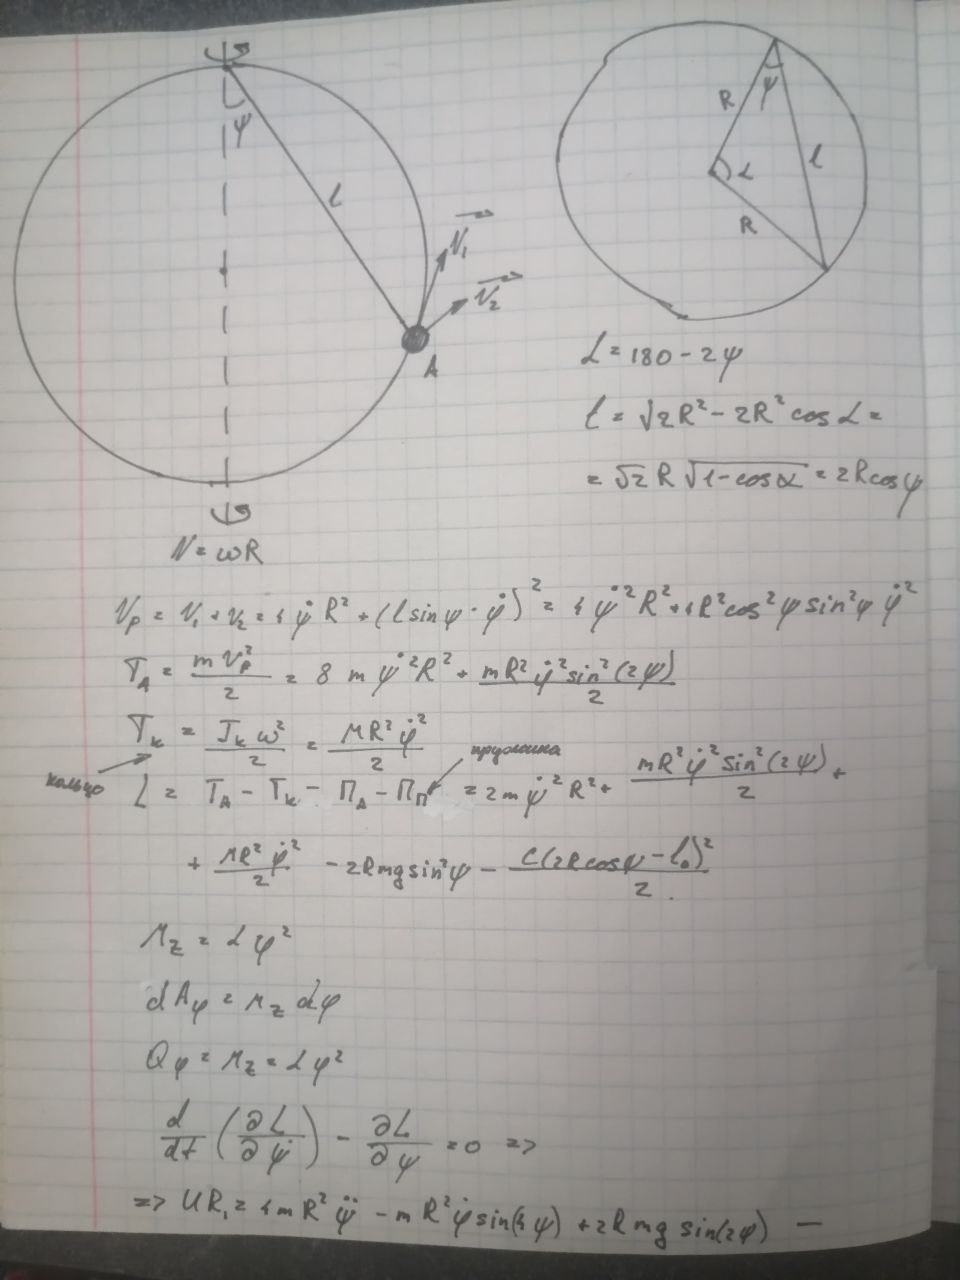 ψ
l
V₁
V₂
A
R
ψ
α
l
R
α = 180 - 2ψ
l = √2R² - 2R² cos α =
= √2 R √1-cosα = 2Rcosψ
V = ωR
Vₚ = V₁ + V₂ = 4ψ̇R² + (l sinψ · φ̇)² = 4ψ̇²R² + 4R²cos²ψ sin²ψ φ̇²
T_A = mVₚ²/2 = 8 m ψ̇²R² + mR²φ̇²sin²(2ψ)/2
T_к = J_к ω²/2 = MR²φ̇²/2
кольцо
пружина
L = T_A - T_к - П_A - П_П = 2mψ̇²R² + mR²φ̇²sin²(2ψ)/2 +
+ MR²φ̇²/2 - 2Rmg sin²ψ - c(2Rcosψ - l₀)²/2.
M_z = αφ²
dA_φ = M_z dφ
Q_φ = M_z = αφ²
d/dt (∂L/∂ψ̇) - ∂L/∂ψ = 0 =>
=> UR₁ = 4mR²ψ̈ - mR²φ̇ sin(4ψ) + 2Rmg sin(2ψ) —